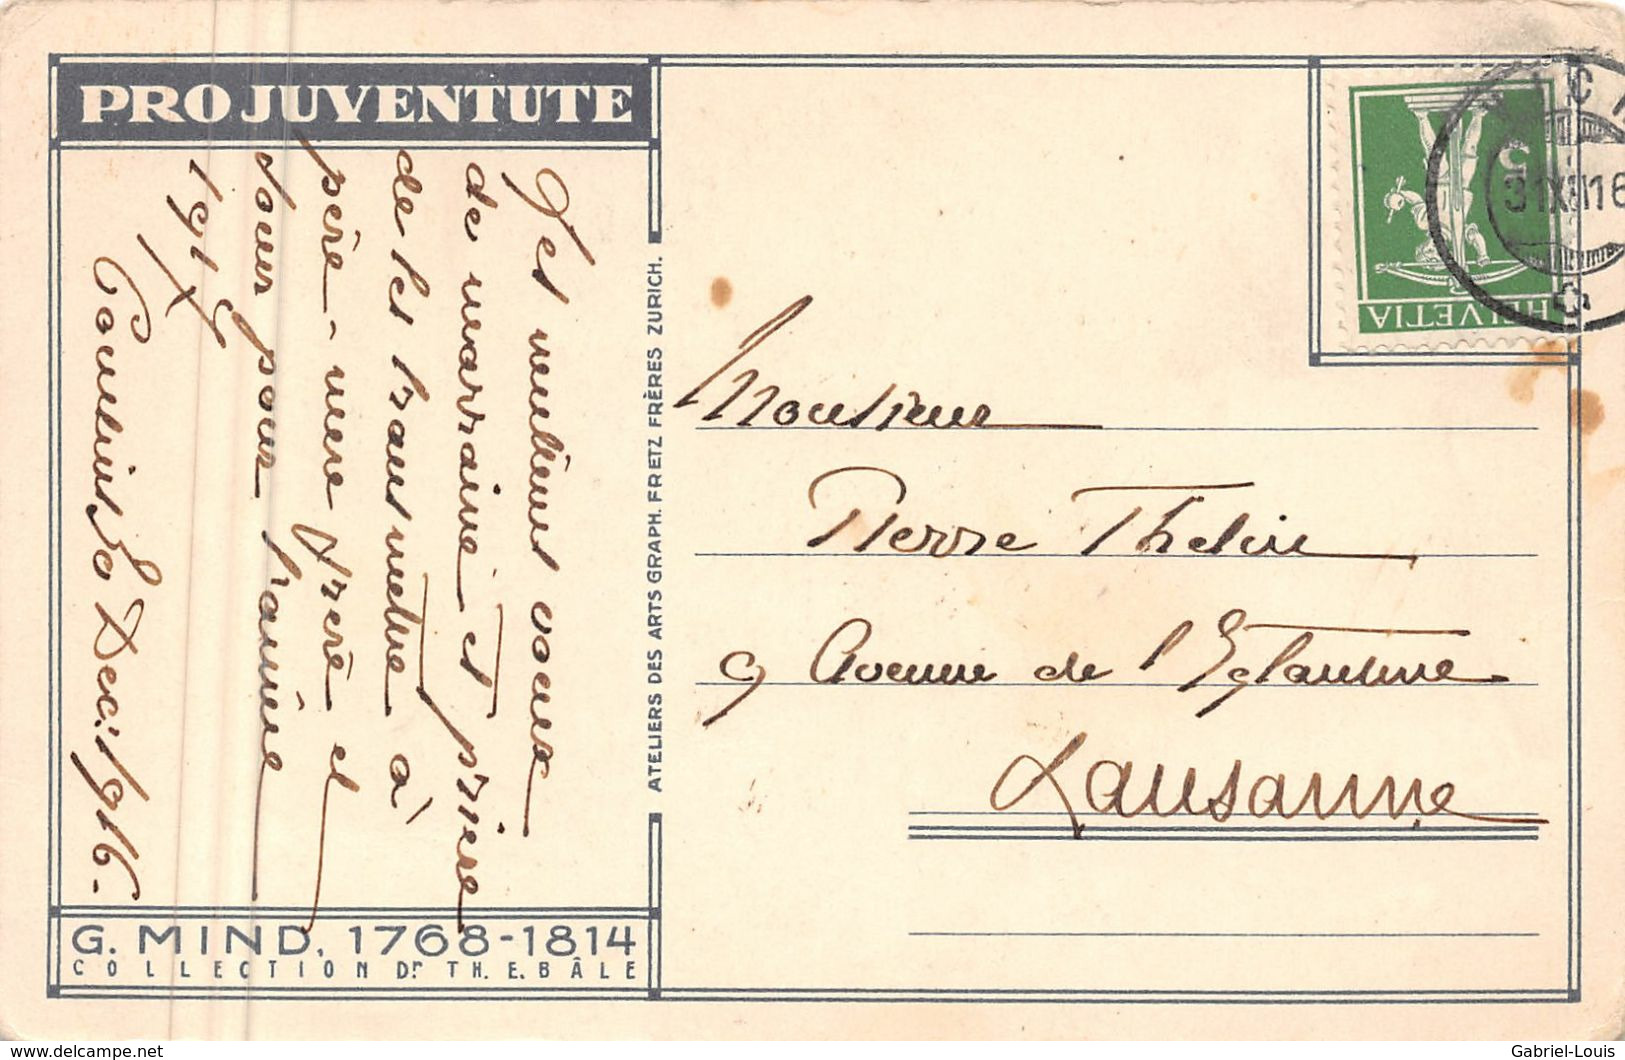 PRO JUVENTUTE
Ses meilleurs voeux
de marraine et prière
de les transmettre à
père - mère frère et
soeur pour l'année
191
Dec: 1916.
G. MIND, 1768-1814
COLLECTION Dr TH. E. BÂLE
ATELIERS DES ARTS GRAPH. FRETZ FRÈRES ZURICH.
HELVETIA
5
31 XII 16
Monsieur
Pierre Thélin
9 Avenue de l'Eglantine
Lausanne
delcampe.net
Gabriel-Louis